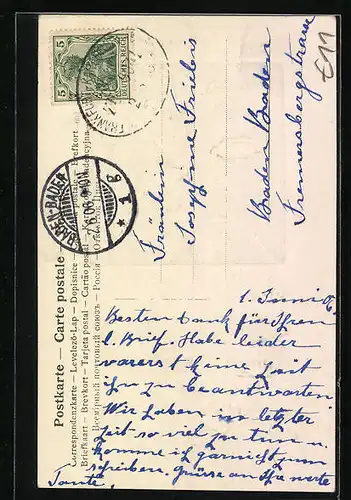 5 5
DEUTSCHES REICH
FRANKFURT
BADEN-BADEN
2.6.06.
* 1 g
Postkarte — Carte postale
Correspondenzkarte — Levelező-Lap — Dopisnice
Briefkaart — Brevkort — Tarjeta postal — Cartão postal
Всемірный почтовый союзъ — Россія
Fräulein
Josephine Friebis
Baden Baden
Fremersbergstrasse
E11
1. Juni 06
Besten Dank für Ihren
l. Brief. Habe leider
vorerst keine Zeit
ihn zu beantworten
Wir haben in letzter
Zeit so viel zu tun u.
komme ich garnicht zum
schreiben. Grüsse an Ihre werte
Tante.